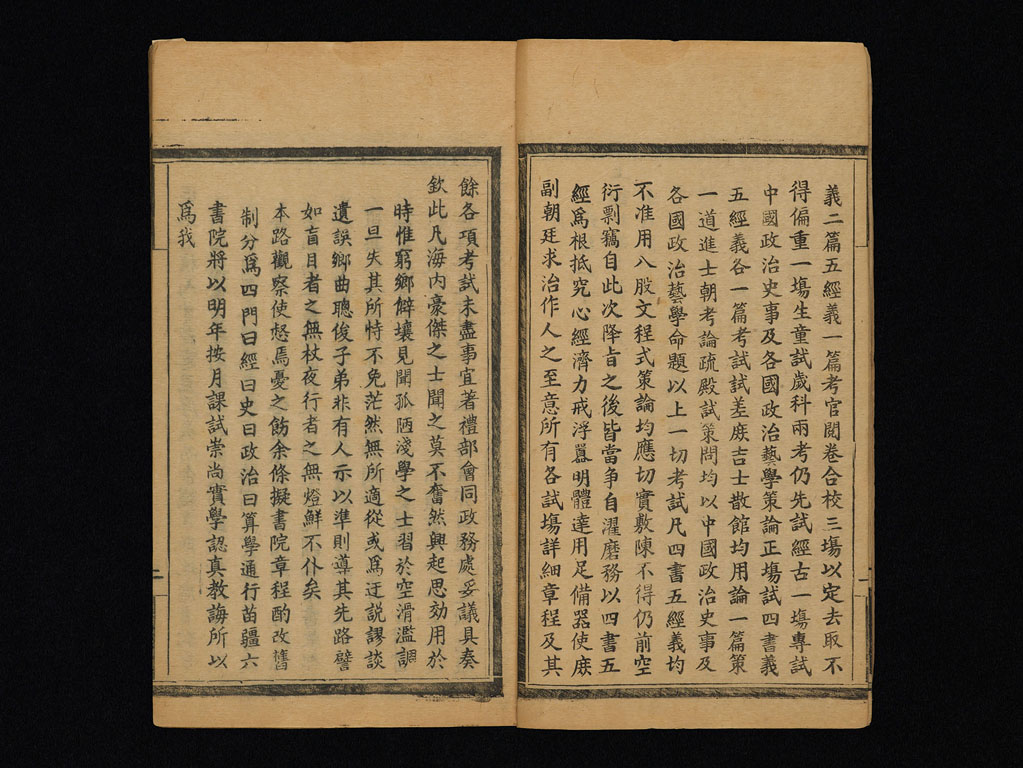 義二篇五經義一篇考官閱卷合校三塲以定去取不
得偏重一塲生童試歲科兩考仍先試經古一塲專試
中國政治史事及各國政治藝學策論正塲試四書義
五經義各一篇考試試差庻吉士散館均用論一篇策
一道進士朝考論疏殿試策問均以中國政治史事及
各國政治藝學命題以上一切考試凡四書五經義均
不准用八股文程式策論均應切實敷陳不得仍前空
衍剽竊自此次降旨之後皆當爭自濯磨務以四書五
經爲根抵究心經濟力戒浮囂明體達用足備器使庻
副朝廷求治作人之至意所有各試塲詳細章程及其
餘各項考試未盡事宜著禮部會同政務處妥議具奏
欽此凡海内豪傑之士聞之莫不奮然興起思効用於
時惟窮鄉僻壤見聞孤陋淺學之士習於空滑濫調
一旦失其所恃不免茫然無所適從或爲迂説謬談
遺誤鄉曲聰俊子弟非有人示以準則導其先路譬
如盲目者之無杖夜行者之無燈鮮不仆矣
本路觀察使怒焉憂之飭余條擬書院章程酌改舊
制分爲四門曰經曰史曰政治曰算學通行苗疆六
書院將以明年按月課試崇尚實學認真教誨所以
爲我
二